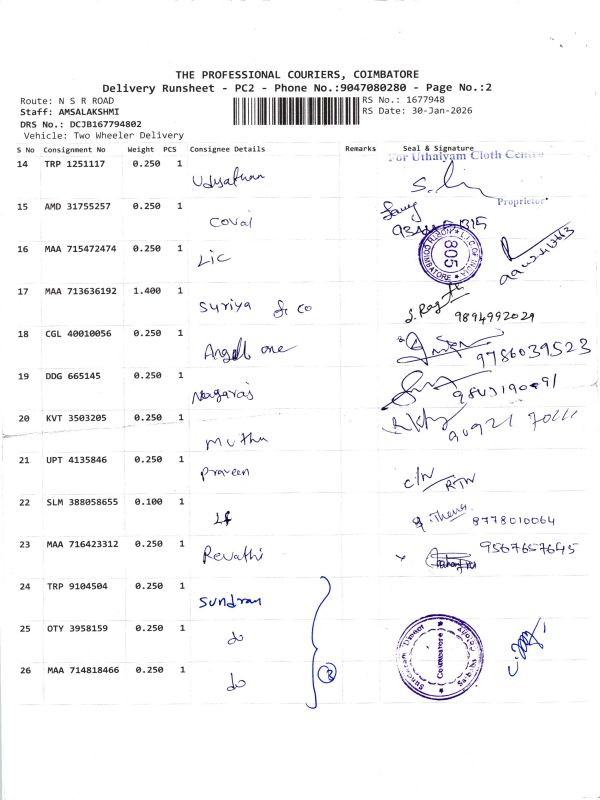 THE PROFESSIONAL COURIERS, COIMBATORE
Delivery Runsheet - PC2 - Phone No.:9047080280 - Page No.:2
Route: N S R ROAD
RS No.: 1677948
Staff: AMSALAKSHMI
RS Date: 30-Jan-2026
DRS No.: DCJB167794802
Vehicle: Two Wheeler Delivery
S No Consignment No Weight PCS Consignee Details Remarks Seal & Signature
For Uthaiyam Cloth Centre
14 TRP 1251117 0.250 1
Proprietor
15 AMD 31755257 0.250 1 Coval
16 MAA 715472474 0.250 1 Lic
805
17 MAA 713636192 1.400 1 Suriya & co
9894992029
18 CGL 40010056 0.250 1 Angell one
9786039523
19 DDG 665145 0.250 1 Nagaraj
20 KVT 3503205 0.250 1 Muthu
21 UPT 4135846 0.250 1 Praveen
C/N RTN
22 SLM 388058655 0.100 1
8778010064
23 MAA 716423312 0.250 1 Revathi
9567657645
24 TRP 9104504 0.250 1 Sundram
25 OTY 3958159 0.250 1 do
26 MAA 714818466 0.250 1 do
3
Coimbatore